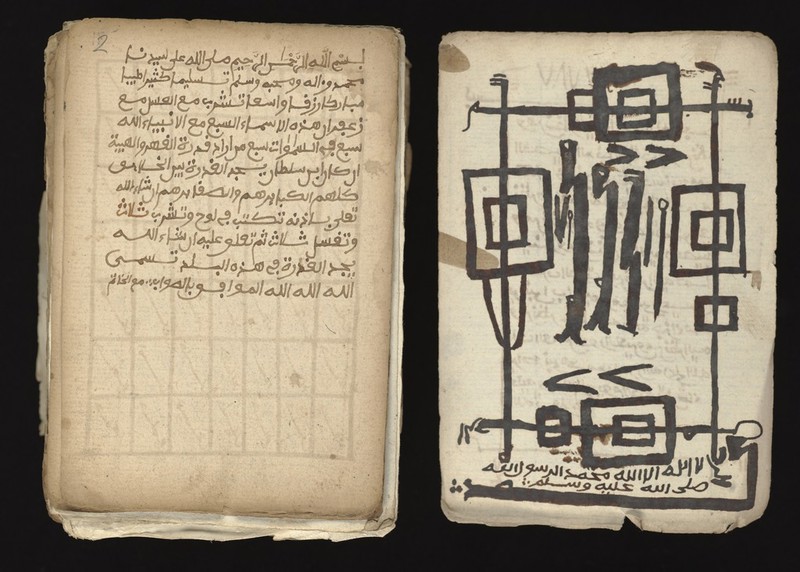 2
بسم الله الرحمن الرحيم صلى الله على سيدنا
محمد واله وصحبه وسلم تسليما كثيرا طيبا
مباركا رزقا واسعا تشرب مع العسل مع
زعفران هذه الاسماء السبع مع الانبياء الله
سبع السلوات سبع من اراد قدرة القهر والهيبة
ان كان سلطان يجد القدرة بين الخلايق
كلهم اكبابرهم ان شاء الله
تعلى باذنه تكتب في لوح وتشرب ثلاث
وتغسل ثلاث ثم تعلو عليه ان شاء الله
يجد القدرة في هذه البلد تسمى
الله الله الله مع الخاتم
لا اله الا الله محمد الرسول الله
صلى الله عليه وسلم